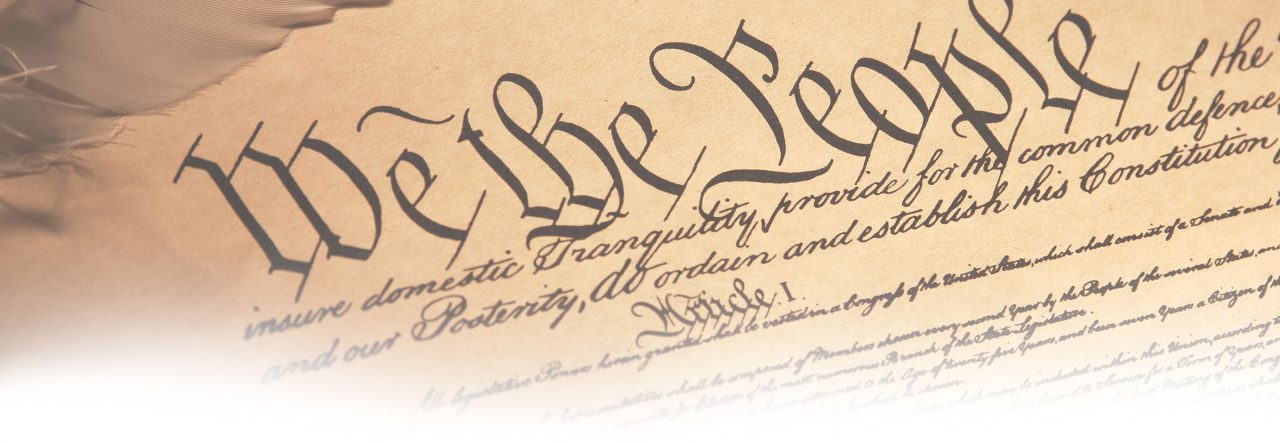 We the People of the
insure domestic Tranquility, provide for the common defence,
and our Posterity, do ordain and establish this Constitution
Article. I.
All legislative Powers herein granted shall be vested in a Congreſs of the United States, which shall consist of a Senate and
shall be composed of Members chosen every second Year by the People of the several States, and
for Electors of the most numerous Branch of the State Legislature.
attained to the Age of twenty five Years, and been seven Years a Citizen of the
be chosen.
which may be included within this Union, according
to Service for a Term of Years, and
first Meeting of the